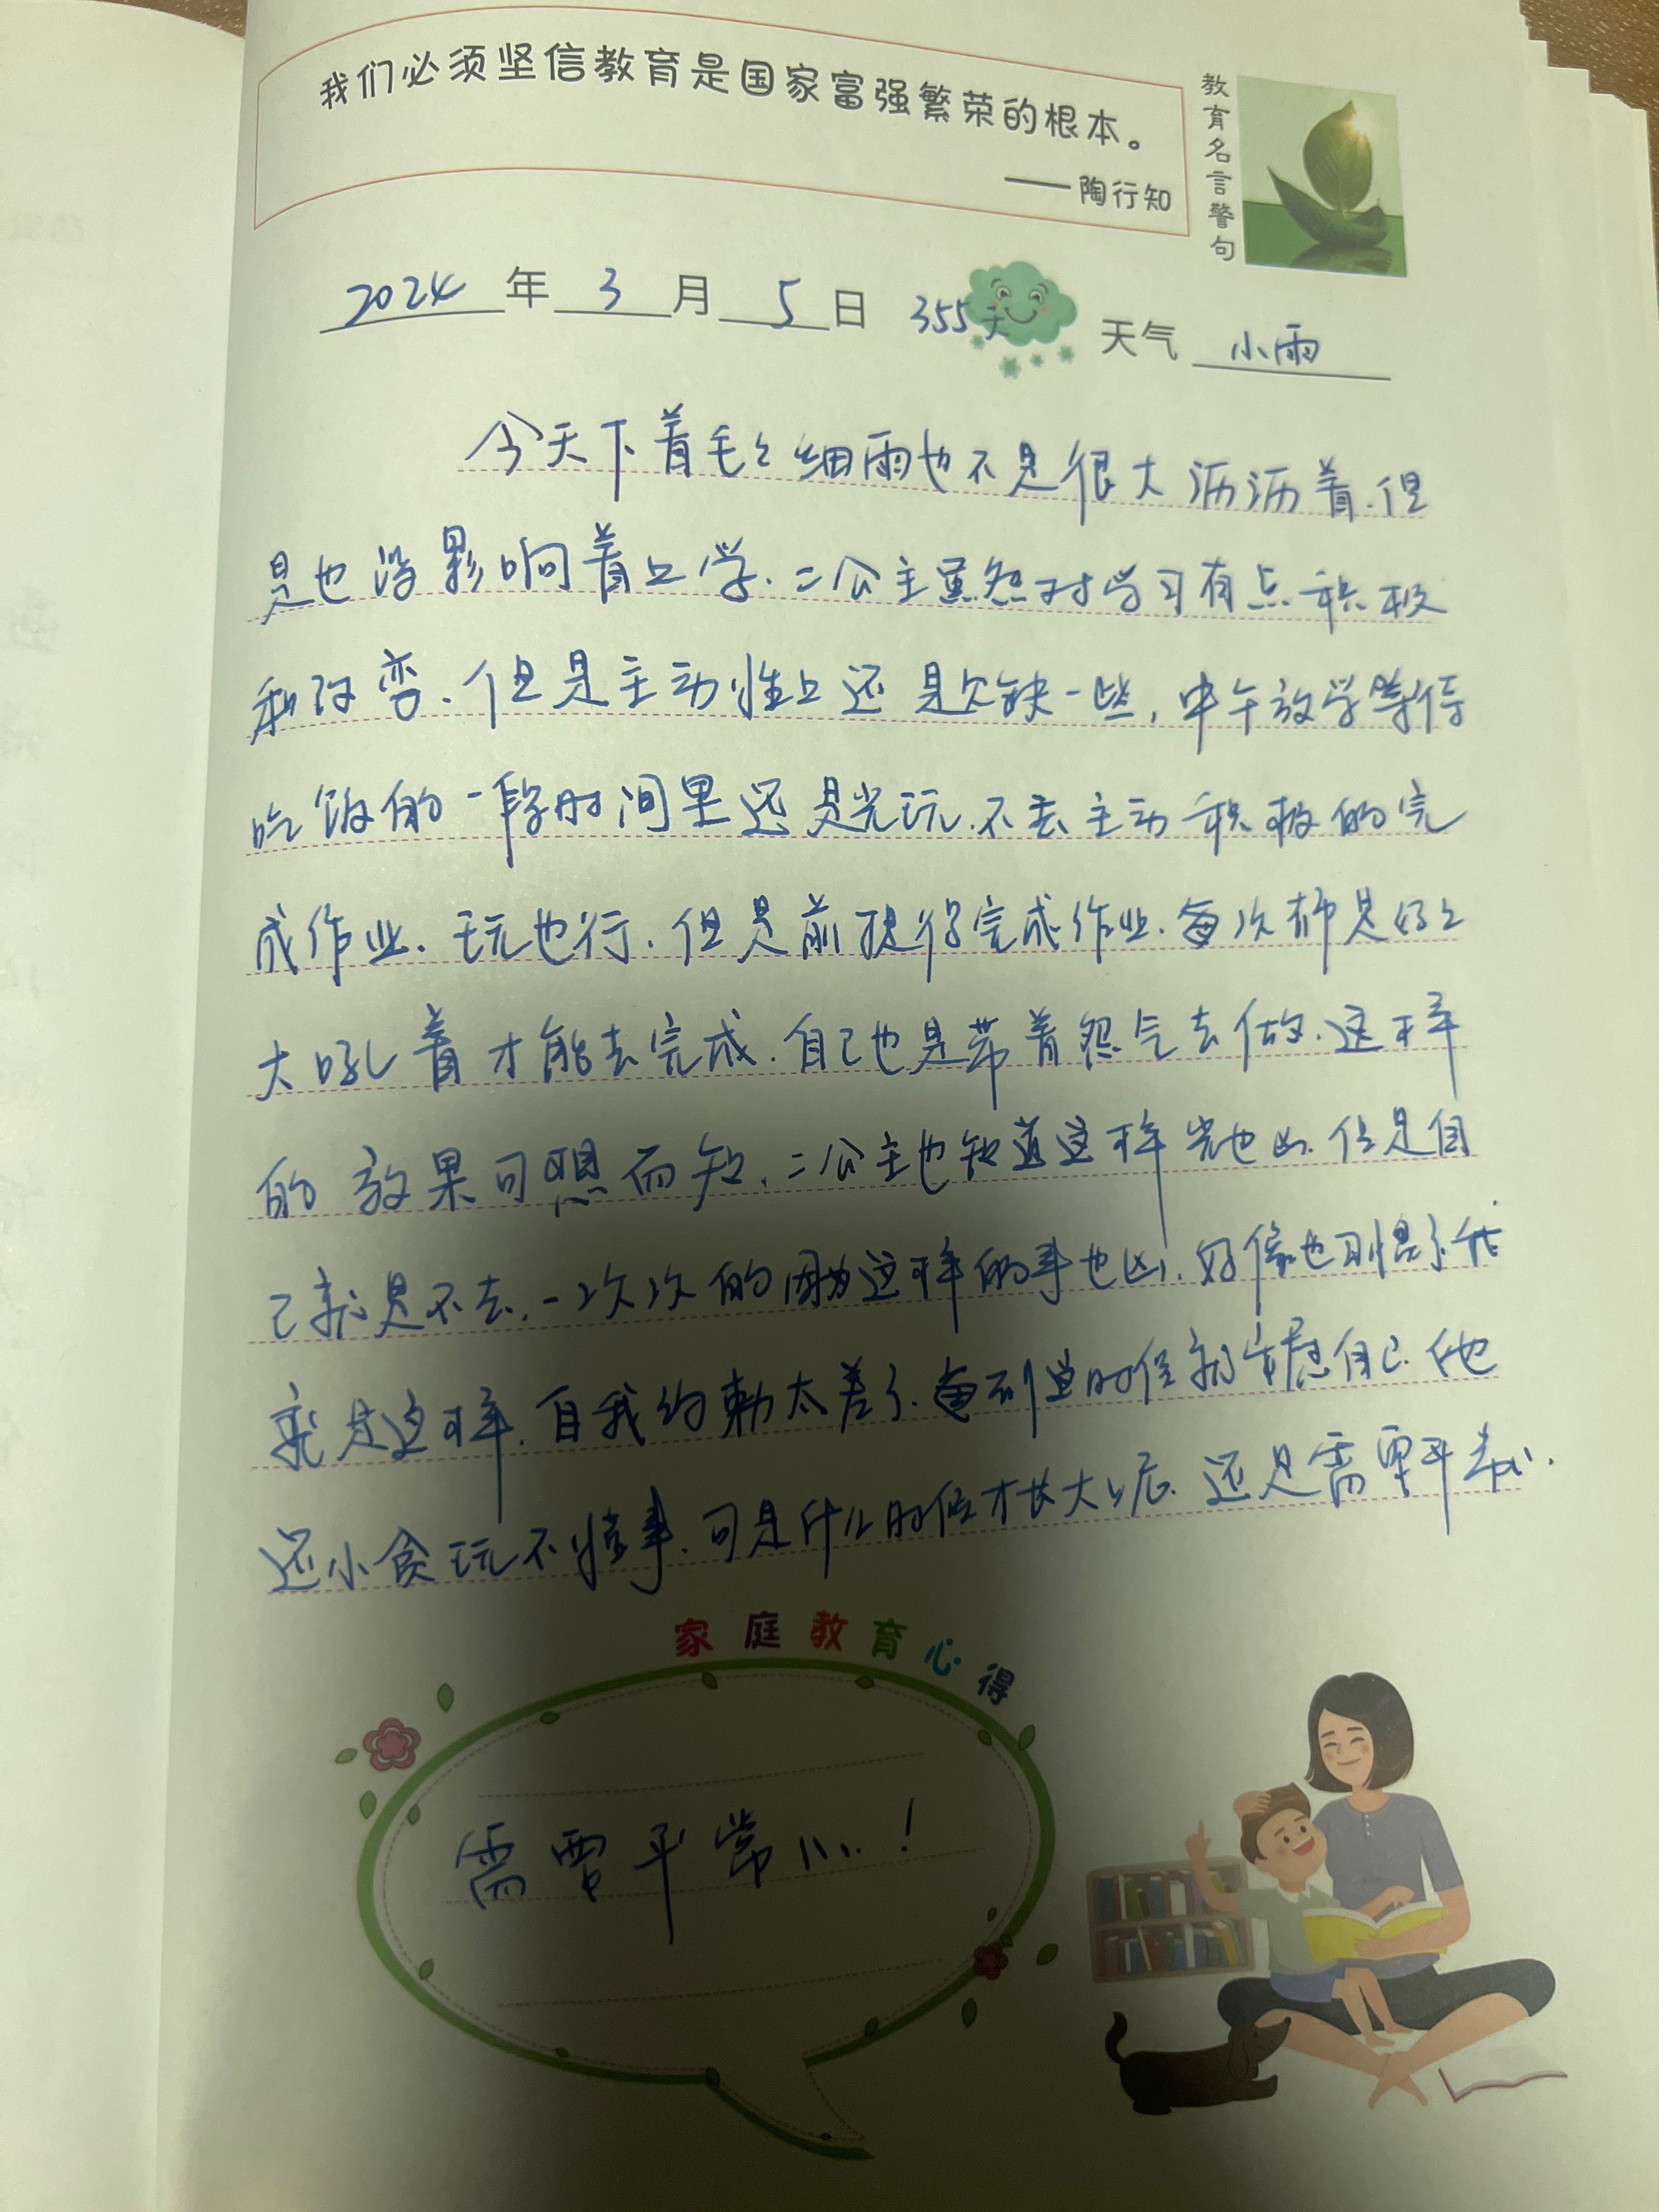 我们必须坚信教育是国家富强繁荣的根本。
——陶行知
教育名言警句
2024年3月5日 355天 天气 小雨
今天下着毛毛细雨也不是很大沥沥着.但
是也没影响着上学.二公主虽然对学习有点积极
和改变.但是主动性上还是欠缺一些,中午放学等待
吃饭的一段时间里还是光玩.不去主动积极的完
成作业.玩也行.但是前提得完成作业.每次都是好々
大吼着才能去完成.自己也是带着怨气去做.这样
的效果可想而知.二公主也知道这样 但是自
己就是不去.一次次的因为这样的事也凶.好像也习惯了
就是这样.自我约束太差了.每到当时候就安慰自己.他
还小贪玩不懂事.可是什么时候才长大呢.还是需要平常心.
家庭教育心得
需要平常心.!